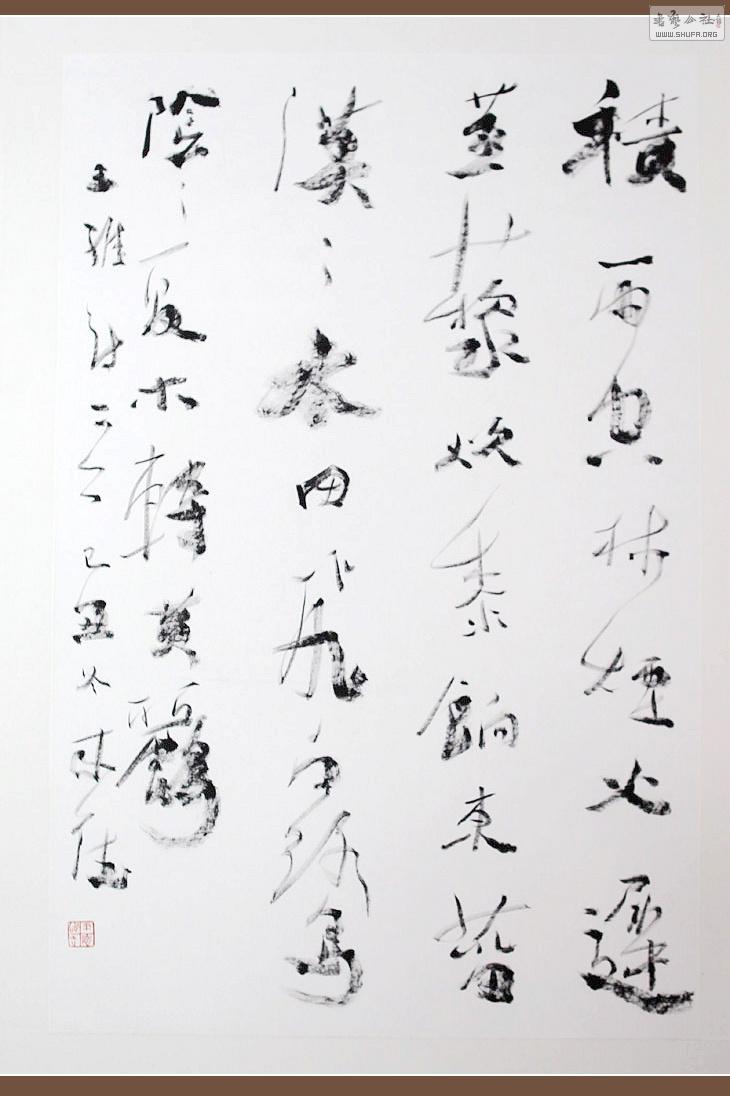 積雨空林煙火遲
蒸藜炊黍餉東菑
漠〻水田飛白鷺
陰〻夏木轉黃鸝
王維詩 己丑冬
書藝公社
WWW.SHUFA.ORG